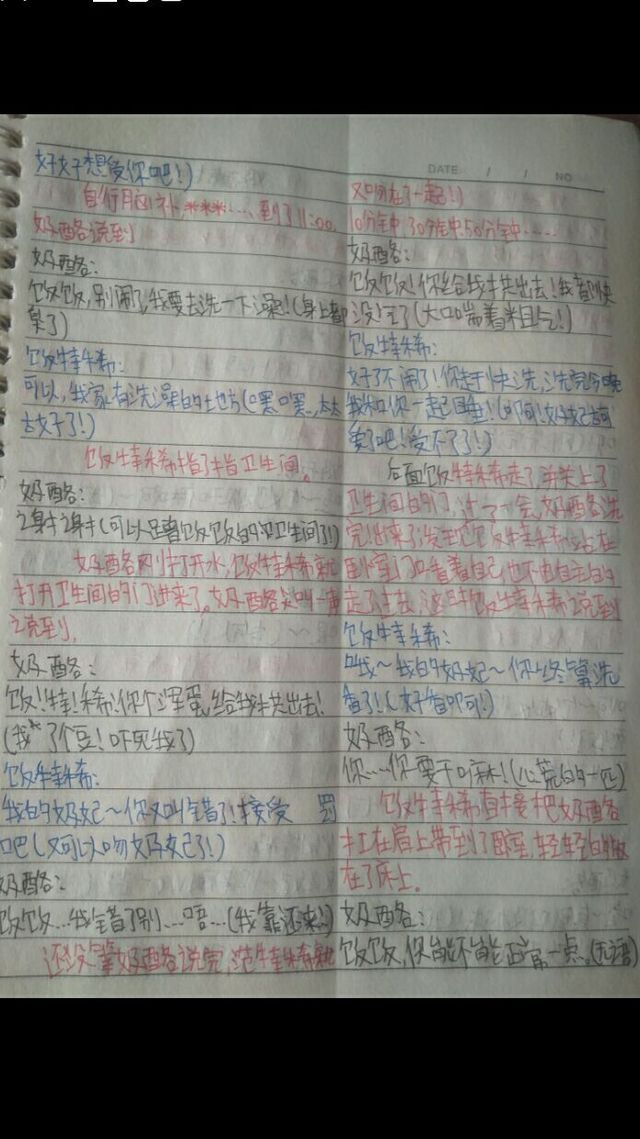 好好想爱你吧!)
自行脑补 ※※※…… 到了11:00,
奶酪说到
奶酪:
饭饭,别闹了,我要去洗一下澡!(身上都
臭了)
饭特稀:
可以,我家有洗澡的地方(嘿嘿,太
太好了!)
饭特稀指了指卫生间。
奶酪:
谢谢(可以
卫生间了!)
奶酪刚打开水,饭特稀就
打开卫生间的门进来了。奶酪尖叫一声
说到。
奶酪:
饭!特!稀!你个浑蛋,给我出去!
(我*了个豆!吓死我了)
饭特稀:
我的奶妃~你又叫错了!接受 罚
吧(又可以吻奶妃了!)
奶酪:
饭饭…我错了别…唔…(我靠还来!)
还没等奶酪说完,范特稀就
DATE / / NO
又吻在了一起!)
10分钟 30分钟 50分钟……
奶酪:
饭饭!你给我出去!我都快
没!了(大口喘着粗气!)
饭特稀:
好了不闹了!你赶快洗,洗完今晚
我和你一起睡!(啊!奶妃
爱了吧!受不了!)
后面饭特稀走了,并关上了
卫生间的门,过了一会,奶酪洗
完出来了,发现饭特稀站在
卧室门口看着自己,也不由自主的
走了过去,这时饭特稀说到
饭特稀:
哦~我的奶妃~你终算洗
香了!(好香啊!)
奶酪:
你……你要干嘛!(心慌的一匹)
饭特稀直接把奶酪
扛在肩上带到了卧室,轻轻的放
在了床上。
奶酪:
饭饭,你能不能正常一点。(无语)